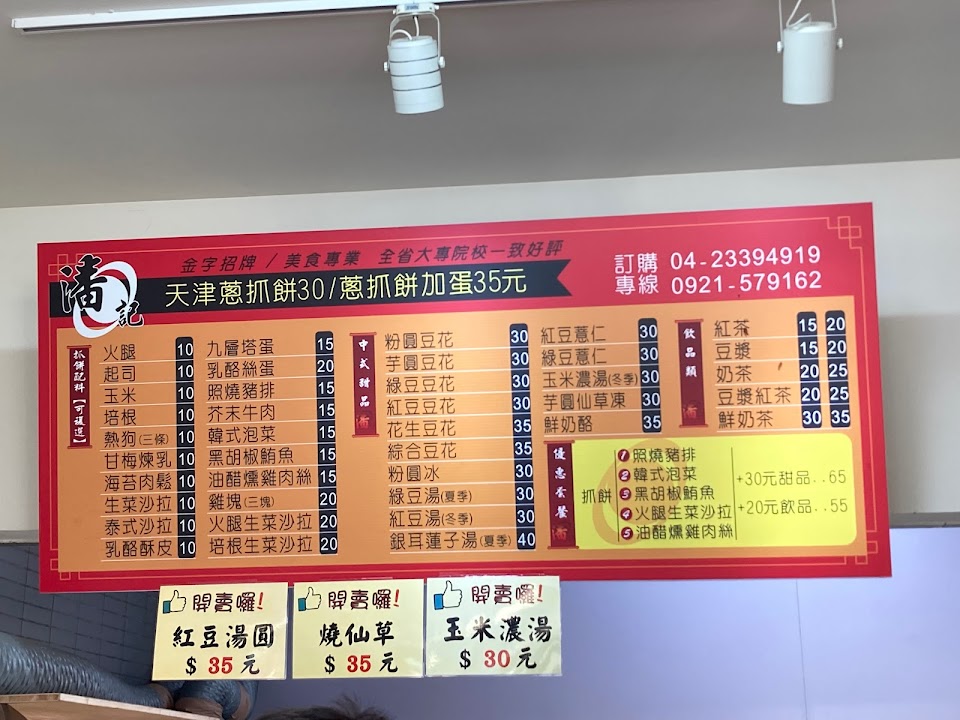 潘記
金字招牌 / 美食專業 全省大專院校一致好評
天津蔥抓餅30/蔥抓餅加蛋35元
訂購專線 04-23394919
0921-579162
抓餅配料【可複選】
火腿 10
起司 10
玉米 10
培根 10
熱狗(三條) 10
甘梅煉乳 10
海苔肉鬆 10
生菜沙拉 10
泰式沙拉 10
乳酪酥皮 10
九層塔蛋 15
乳酪絲蛋 20
照燒豬排 15
芥末牛肉 15
韓式泡菜 15
黑胡椒鮪魚 15
油醋燻雞肉絲 15
雞塊(三塊) 20
火腿生菜沙拉 20
培根生菜沙拉 20
中式甜品
粉圓豆花 30
芋圓豆花 30
綠豆豆花 30
紅豆豆花 30
花生豆花 35
綜合豆花 35
粉圓冰 30
綠豆湯(夏季) 30
紅豆湯(冬季) 30
銀耳蓮子湯(夏季) 40
紅豆薏仁 30
綠豆薏仁 30
玉米濃湯(冬季) 30
芋圓仙草凍 30
鮮奶酪 35
飲品類
紅茶 15 20
豆漿 15 20
奶茶 20 25
豆漿紅茶 20 25
鮮奶茶 30 35
優惠套餐
抓餅
1 照燒豬排
2 韓式泡菜
3 黑胡椒鮪魚
4 火腿生菜沙拉
5 油醋燻雞肉絲
+30元甜品..65
+20元飲品..55
開賣囉!
紅豆湯圓
$ 35 元
開賣囉!
燒仙草
$ 35 元
開賣囉!
玉米濃湯
$ 30 元